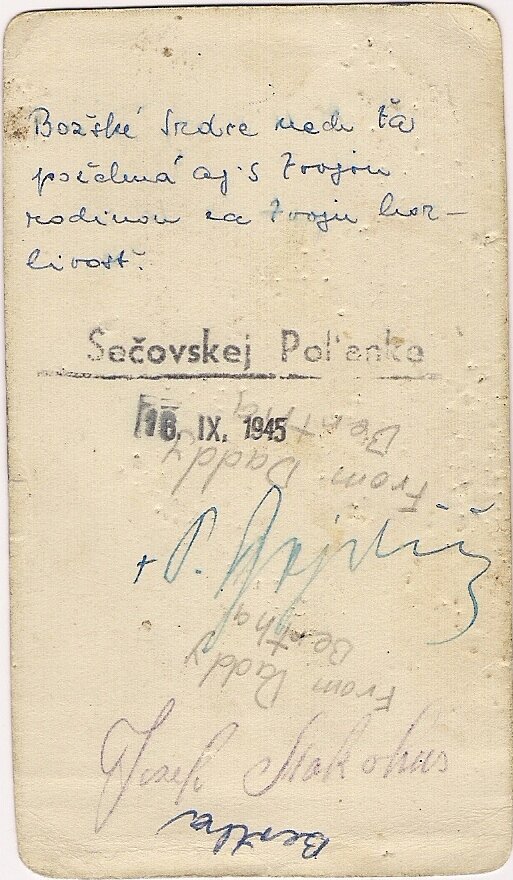 Božské Srdce nech ťa
požehná aj s Tvojou
rodinou za Tvoju hor-
livosť.
Sečovskej Poľanke
16. IX. 1945
From Daddy
Bertha
+ P.
From Daddy
Bertha
Josef
Bertha